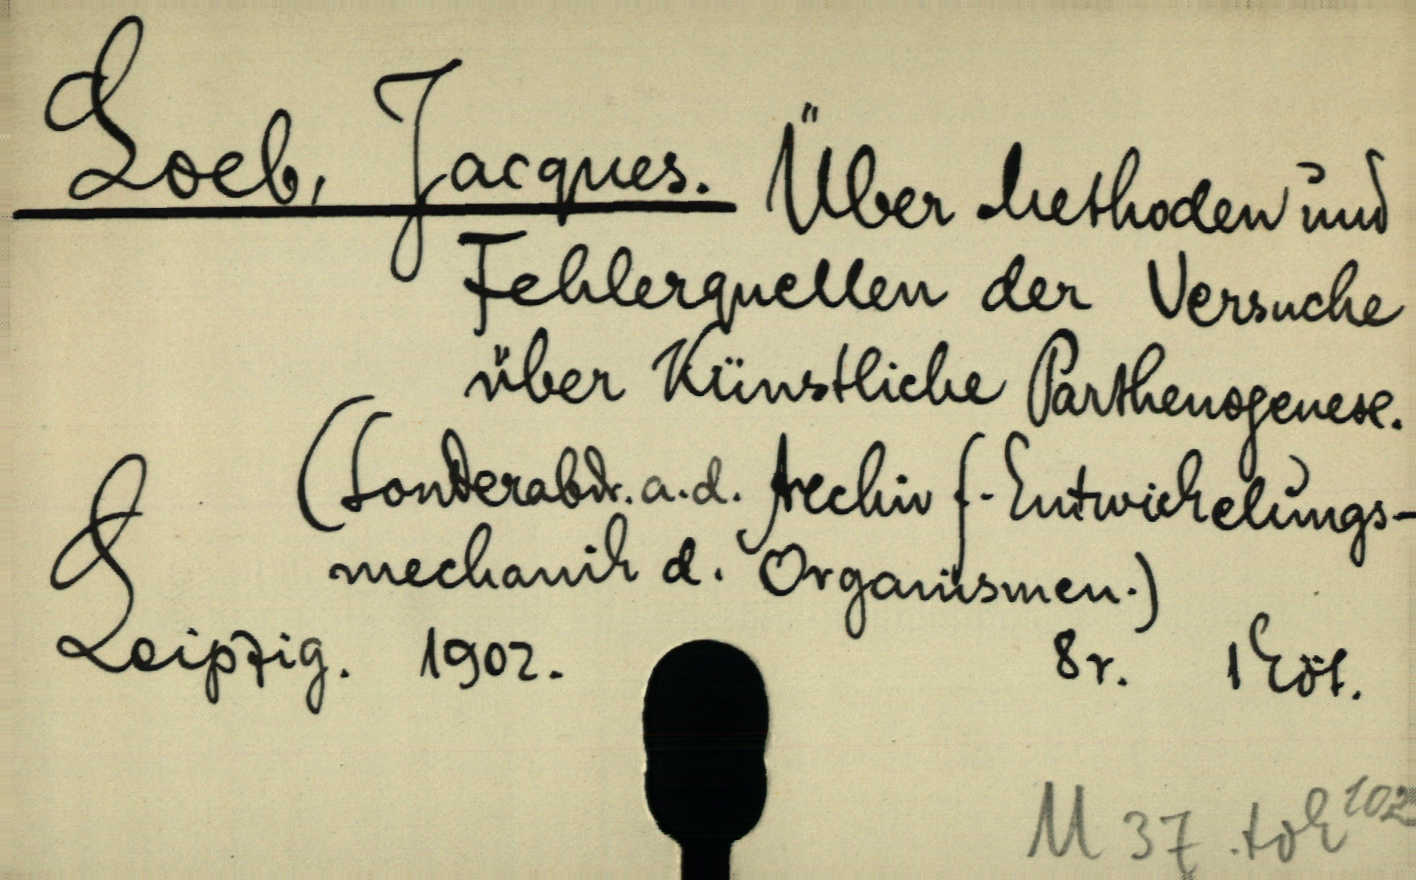 Loeb, Jacques. Über Methoden und
Fehlerquellen der Versuche
über Künstliche Parthenogenese.
(Sonderabdr. a. d. Archiv f. Entwickelungs-
mechanik d. Organismen.)
Leipzig. 1902. 8r. 1 Köt.
M 37. tok 102